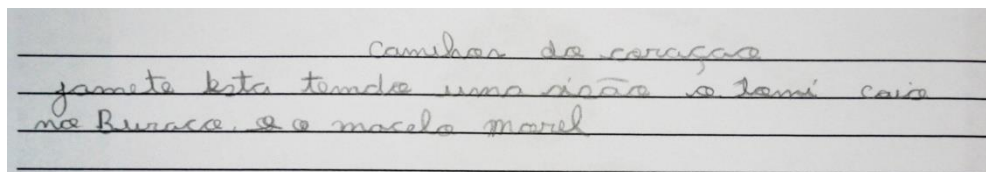 camihos do coração
jamete esta temdo uma sisão o. tomi caio
no Buraco. e o macelo morel